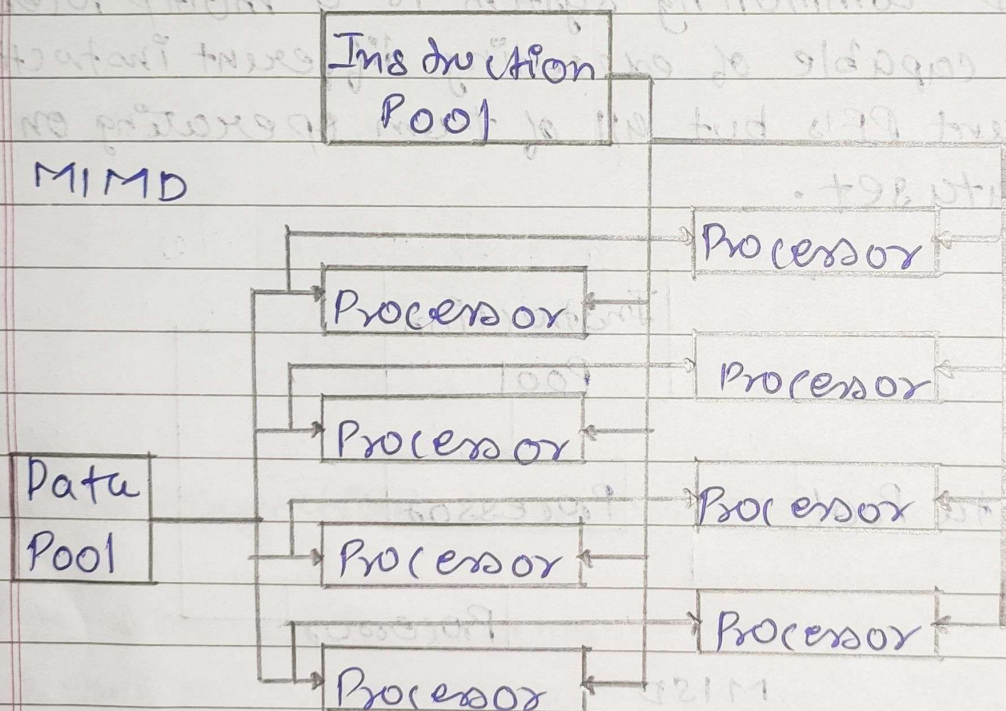 Instruction
Pool
MIMD
Processor
Processor
Processor
Processor
Data
Pool
Processor
Processor
Processor
Processor